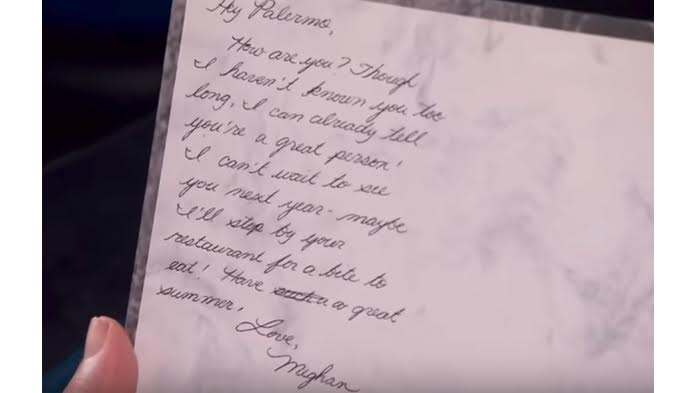 Hey Palermo,
How are you? Though
I haven't known you too
long, I can already tell
you're a great person!
I can't wait to see
you next year - maybe
I'll stop by your
restaurant for a bite to
eat! Have such a a great
summer.
Love,
Meghan